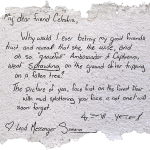 My dear friend Celestia,
Why would I ever betray my good friend's
trust, and reveal that she, the wise, and
oh so "graceful" Ambassador of
went Splashing on the ground after tripping
on a fallen tree?
The picture of you, face first on the forest floor
with mud splattering your face, is not one I will
soon forget.
Lead Messenger